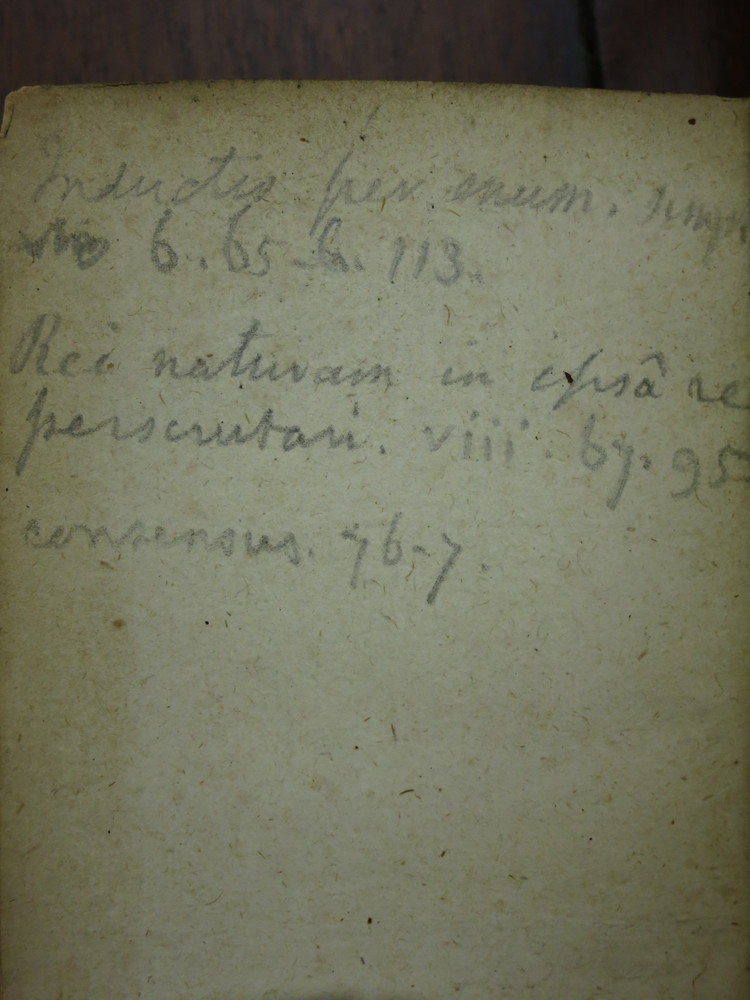 Inductio per enum. simp
6. 65-6. 113.
Rei naturam in ipsâ re
perscrutari. viii. 67. 95
consensus. 76-7.